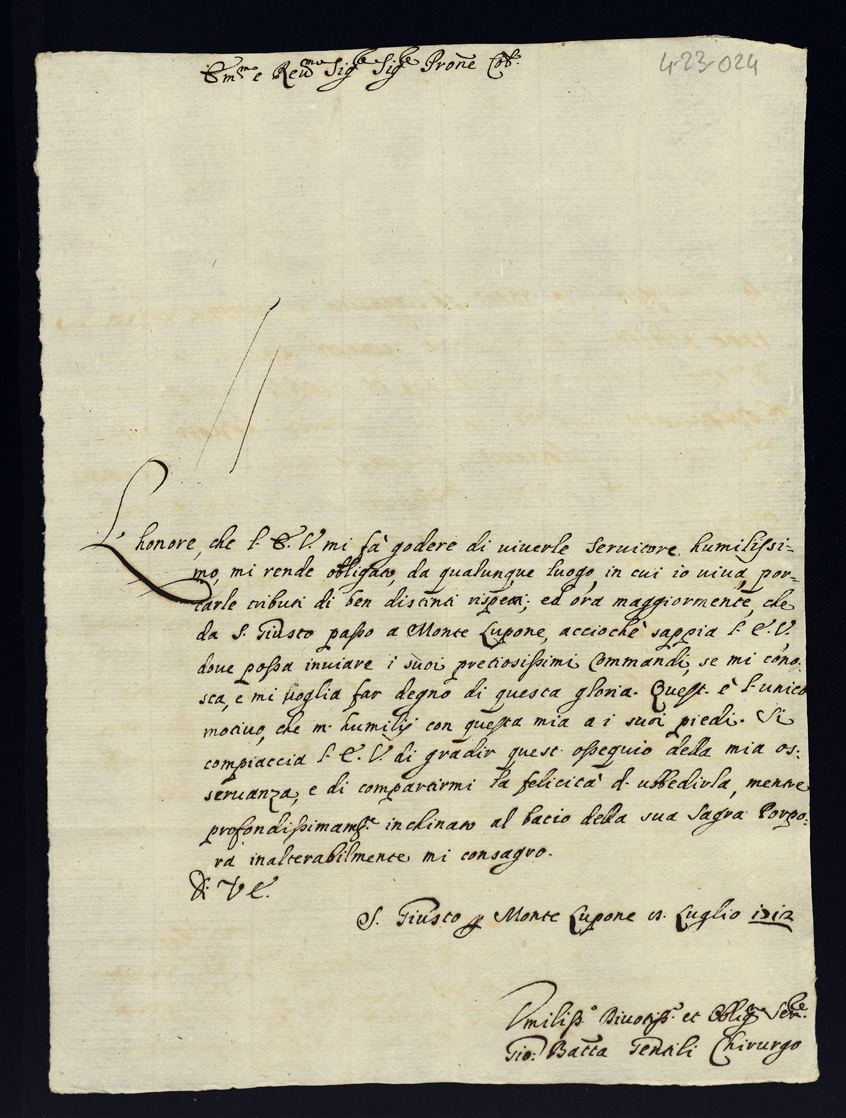 Em.mo e Rev.mo Sig.re Sig.re Prone Col.
4-23-024
L'honore, che l'E. V. mi fà godere di viverle servitore humilissi-
mo, mi rende obligato, da qualunque luogo, in cui io viva, por-
tarle tributi di ben distinti rispetti; ed ora maggiormente, che
da S. Giusto passo a Monte Lupone, acciochè sappia l'E. V.
dove possa inviare i suoi pretiosissimi Commandi, se mi cono-
sca, e mi voglia far degno di questa gloria. Quest' è l'unico
motivo, che m' humilij con questa mia a i suoi piedi. Si
compiaccia l'E. V. di gradir quest' ossequio della mia os:
servanza, e di compartirmi la felicità d' ubbedirla, mentre
profondissimam.te inclinato al bacio della sua Sagra Porpo:
ra inalterabilmente mi consagro.
Di V E.
S. Giusto p Monte Lupone Luglio 1712
Umiliss.o Divotiss.o et Oblig.mo Ser.re
Gio: Batta Gentili Chirurgo